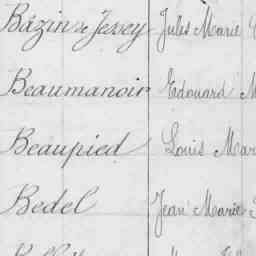 Bazin de Jessey Jules Marie
Beaumanoir Edouard M
Beaupied Louis Mar
Bedel Jean Marie